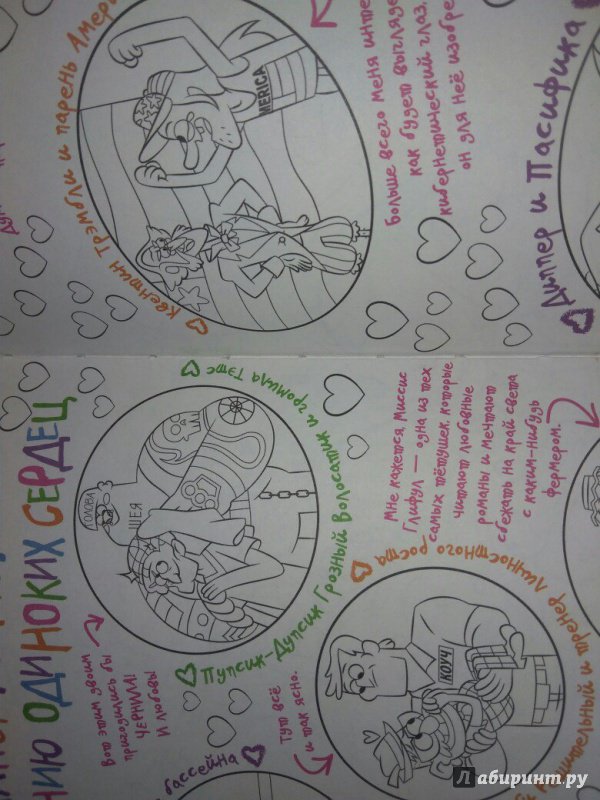 НИЮ ОДИНОКИХ СЕРДЕЦ
Вот этим двоим
пригодились бы
ЧЕРНИЛА!
И любовь!
ГОЛОВА
ШЕЯ
Пупсик-Дупсик Грозный Волосатик и громила Тэтс
бассейна
Тут всё
и так ясно.
КОУЧ
и тренер Личностного роста
Мне кажется, Миссис
Глифул — одна из тех
самых тётушек, которые
читают любовные
романы и мечтают
сбежать на край света
с каким-нибудь
фермером.
Квентин Трэмбли и парень Амери
MERICA
Больше всего меня инте
как будет выгляде
кибернетический глаз,
он для неё изобре
Диппер и Пасифика
Лабиринт.ру